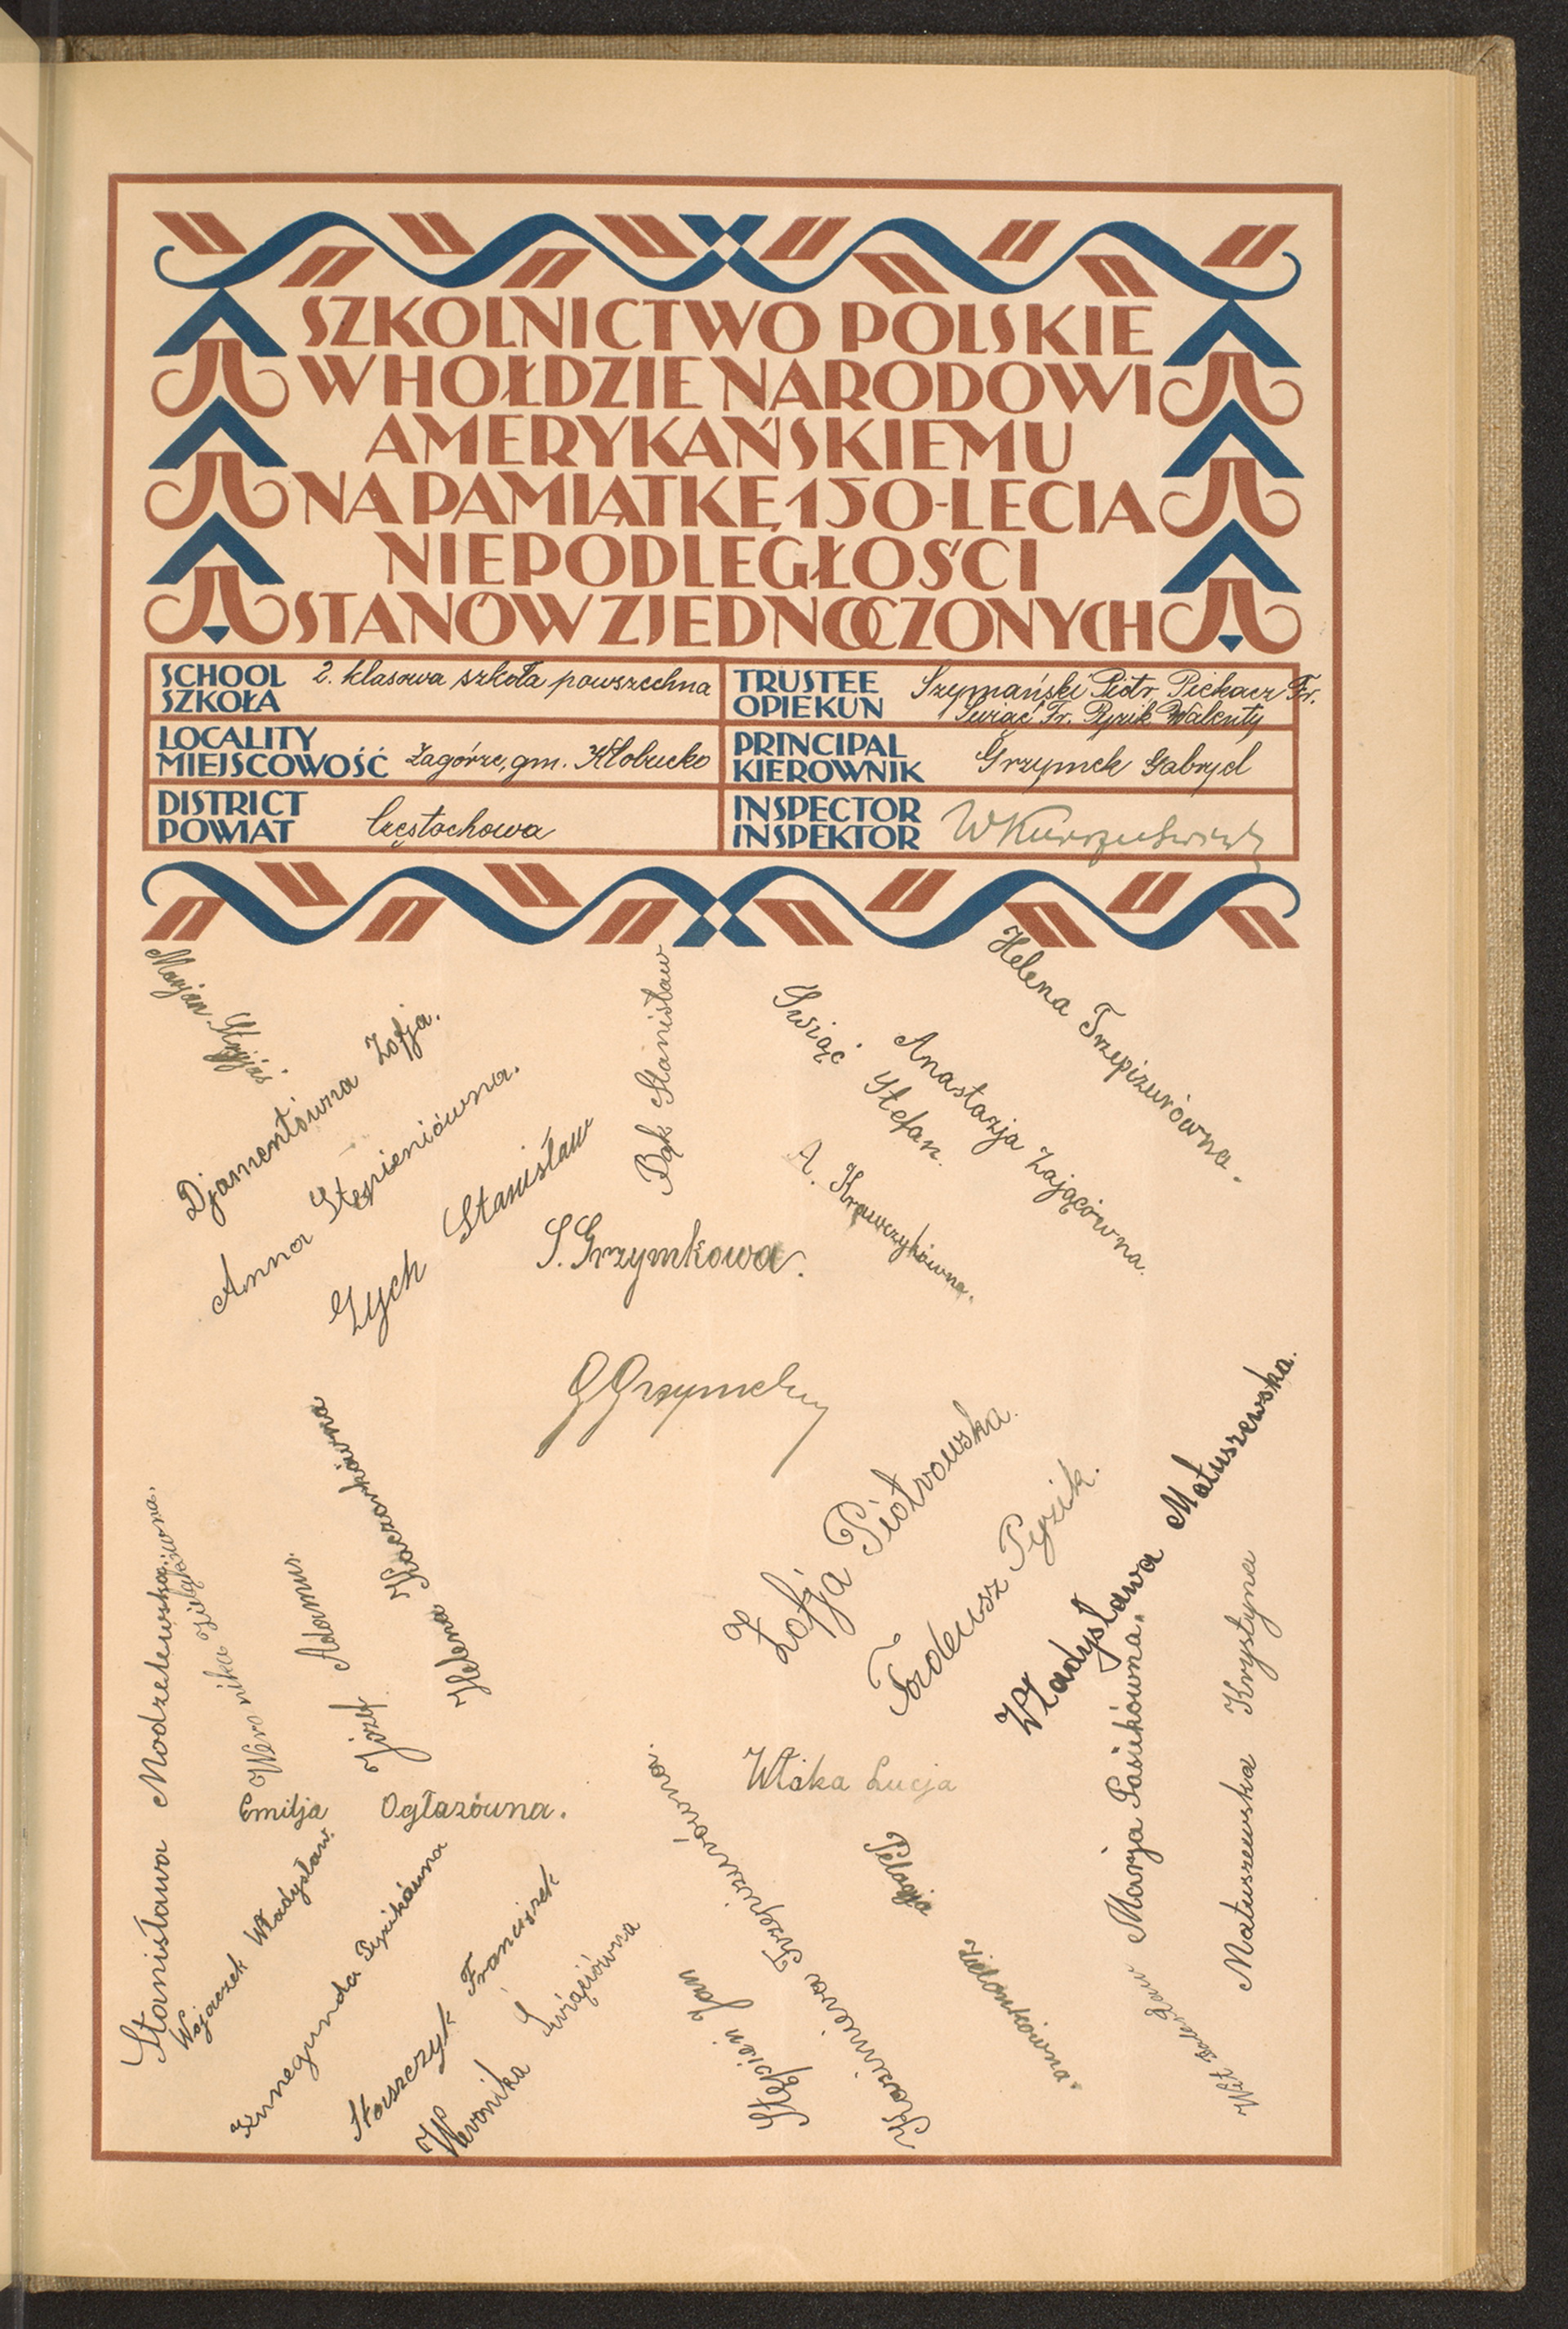 SZKOLNICTWO POLSKIE
W HOŁDZIE NARODOWI
AMERYKAŃSKIEMU
NA PAMIĄTKĘ 150-LECIA
NIEPODLEGŁOŚCI
STANÓW ZJEDNOCZONYCH
SCHOOL
SZKOŁA
2. klasowa szkoła powszechna
TRUSTEE
OPIEKUN
Szymański Piotr, Piekacz Fr.
Świąć Fr. Pyzik Walenty
LOCALITY
MIEJSCOWOŚĆ
Zagórze, gm. Kłobucko
PRINCIPAL
KIEROWNIK
Grzymek Gabryel
DISTRICT
POWIAT
Częstochowa
INSPECTOR
INSPEKTOR
Marjan
Djamentówna Zofja.
Anna Stępieniówna.
Zych Stanisław
Bąk Stanisław
Świąć Stefan.
Anastazja Zającówna.
Helena Trzepizurówna.
A. Krawczykówna.
S. Grzymkowa.
G Grzymek
Stanisława Modzelewska.
Weronika
Józef Adamus.
Helena Kaczorkówna
Zofja Piotrowska.
Tadeusz Pyzik.
Władysława Matuszewska.
Marja Pasiekówna.
Matuszewska Krystyna
Włóka Łucja
Emilja Ogłazówna.
Wojaczek Władysław.
Kunegunda Pyzikówna
Staszczyk Franciszek
Weronika Świąciówna
Stępień Jan
Kazimiera Trzepizurówna.
Pelagja